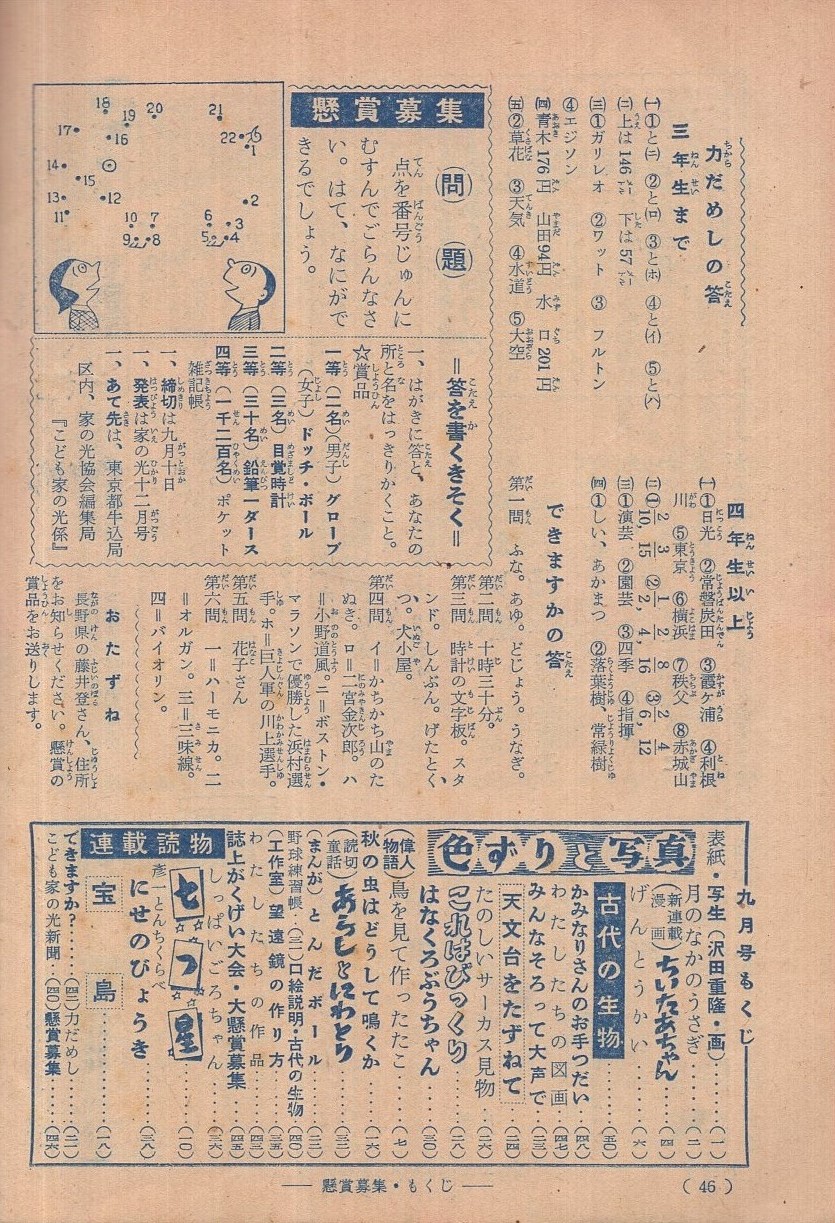 力だめしの答
三年生まで
㈠①と㈡ ②と㈣ ③と㈭ ④と㈠ ⑤と㈧
㈡上は146 下は57
㈢①ガリレオ ②ワット ③フルトン
④エジソン
㈣青木176円 山田94円 水口201円
㈤②草花 ③天気 ④水道 ⑤大空
四年生以上
㈠①日光 ②常磐炭田 ③霞ヶ浦 ④利根
川 ⑤東京 ⑥横浜 ⑦秩父 ⑧赤城山
㈢①演芸 ②園芸 ③四季 ④指揮
㈣①しい、あかまつ ②落葉樹、常緑樹
できますかの答
第一問 ふな。あゆ。どじょう。うなぎ。
第二問 十時三十分。
第三問 時計の文字板。スタ
ンド。しんぶん。げたとく
つ。犬小屋。
第四問 イ=かちかち山のた
ぬき。ロ=二宮金次郎。ハ
=小野道風。ニ=ボストン・
マラソンで優勝した浜村選
手。ホ=巨人軍の川上選手。
第五問 花子さん
第六問 一=ハーモニカ。二
=オルガン。三=三味線。
四=バイオリン。
おたずね
長野県の藤井登さん、住所
をお知らせください。懸賞の
賞品をお送りします。
懸賞募集
(問題)
点を番号じゅんに
むすんでごらんなさ
い。はて、なにがで
きるでしょう。
18
19
20
21
17
16
22
1
14
15
13
12
2
11
10
7
6
3
9
8
5
4
=答を書くきそく=
一、はがきに答と、あなたの
所と名をはっきりかくこと。
☆賞品
一等(二名)(男子)グローブ
(女子)ドッチ・ボール
二等(三名)目覚時計
三等(三十名)鉛筆一ダース
四等(一千二百名)ポケット
雑記帳
一、締切は九月十日
一、発表は家の光十二月号
一、あて先は、東京都牛込局
区内、家の光協会編集局
『こども家の光係』
九月号もくじ
表紙・写生(沢田重隆・画)……(一)
色ずりと写真
月のなかのうさぎ……(二)
(新連載漫画)ちいたあちゃん……(四)
げんとうかい……(六)
古代の生物……(五〇)
かみなりさんのお手つだい……(四八)
わたしたちの図画……(四七)
みんなそろって大声で……(二三)
天文台をたずねて……(二四)
たのしいサーカス見物……(二六)
これはびっくり……(二八)
はなくろぶうちゃん……(三〇)
偉人物語 鳥を見て作ったたこ……(七)
秋の虫はどうして鳴くか……(一六)
(読切童話)あらしとにわとり……(三二)
(まんが)とんだボール……(二二)
野球練習帳…(二二)口絵説明・古代の生物…(四〇)
(工作室)望遠鏡の作り方……(三五)
わたしたちの作品……(四三)
誌上がくげい大会・大懸賞募集……(四五)
連載読物
しっぱいごろちゃん……(三六)
七つ星……(一〇)
彦一とんちくらべ
にせのびょうき……(三八)
宝島……(一八)
できますか?……(四二)力だめし……(二一)
こども家の光新聞…(四〇)懸賞募集……(四六)
懸賞募集・もくじ
(46)